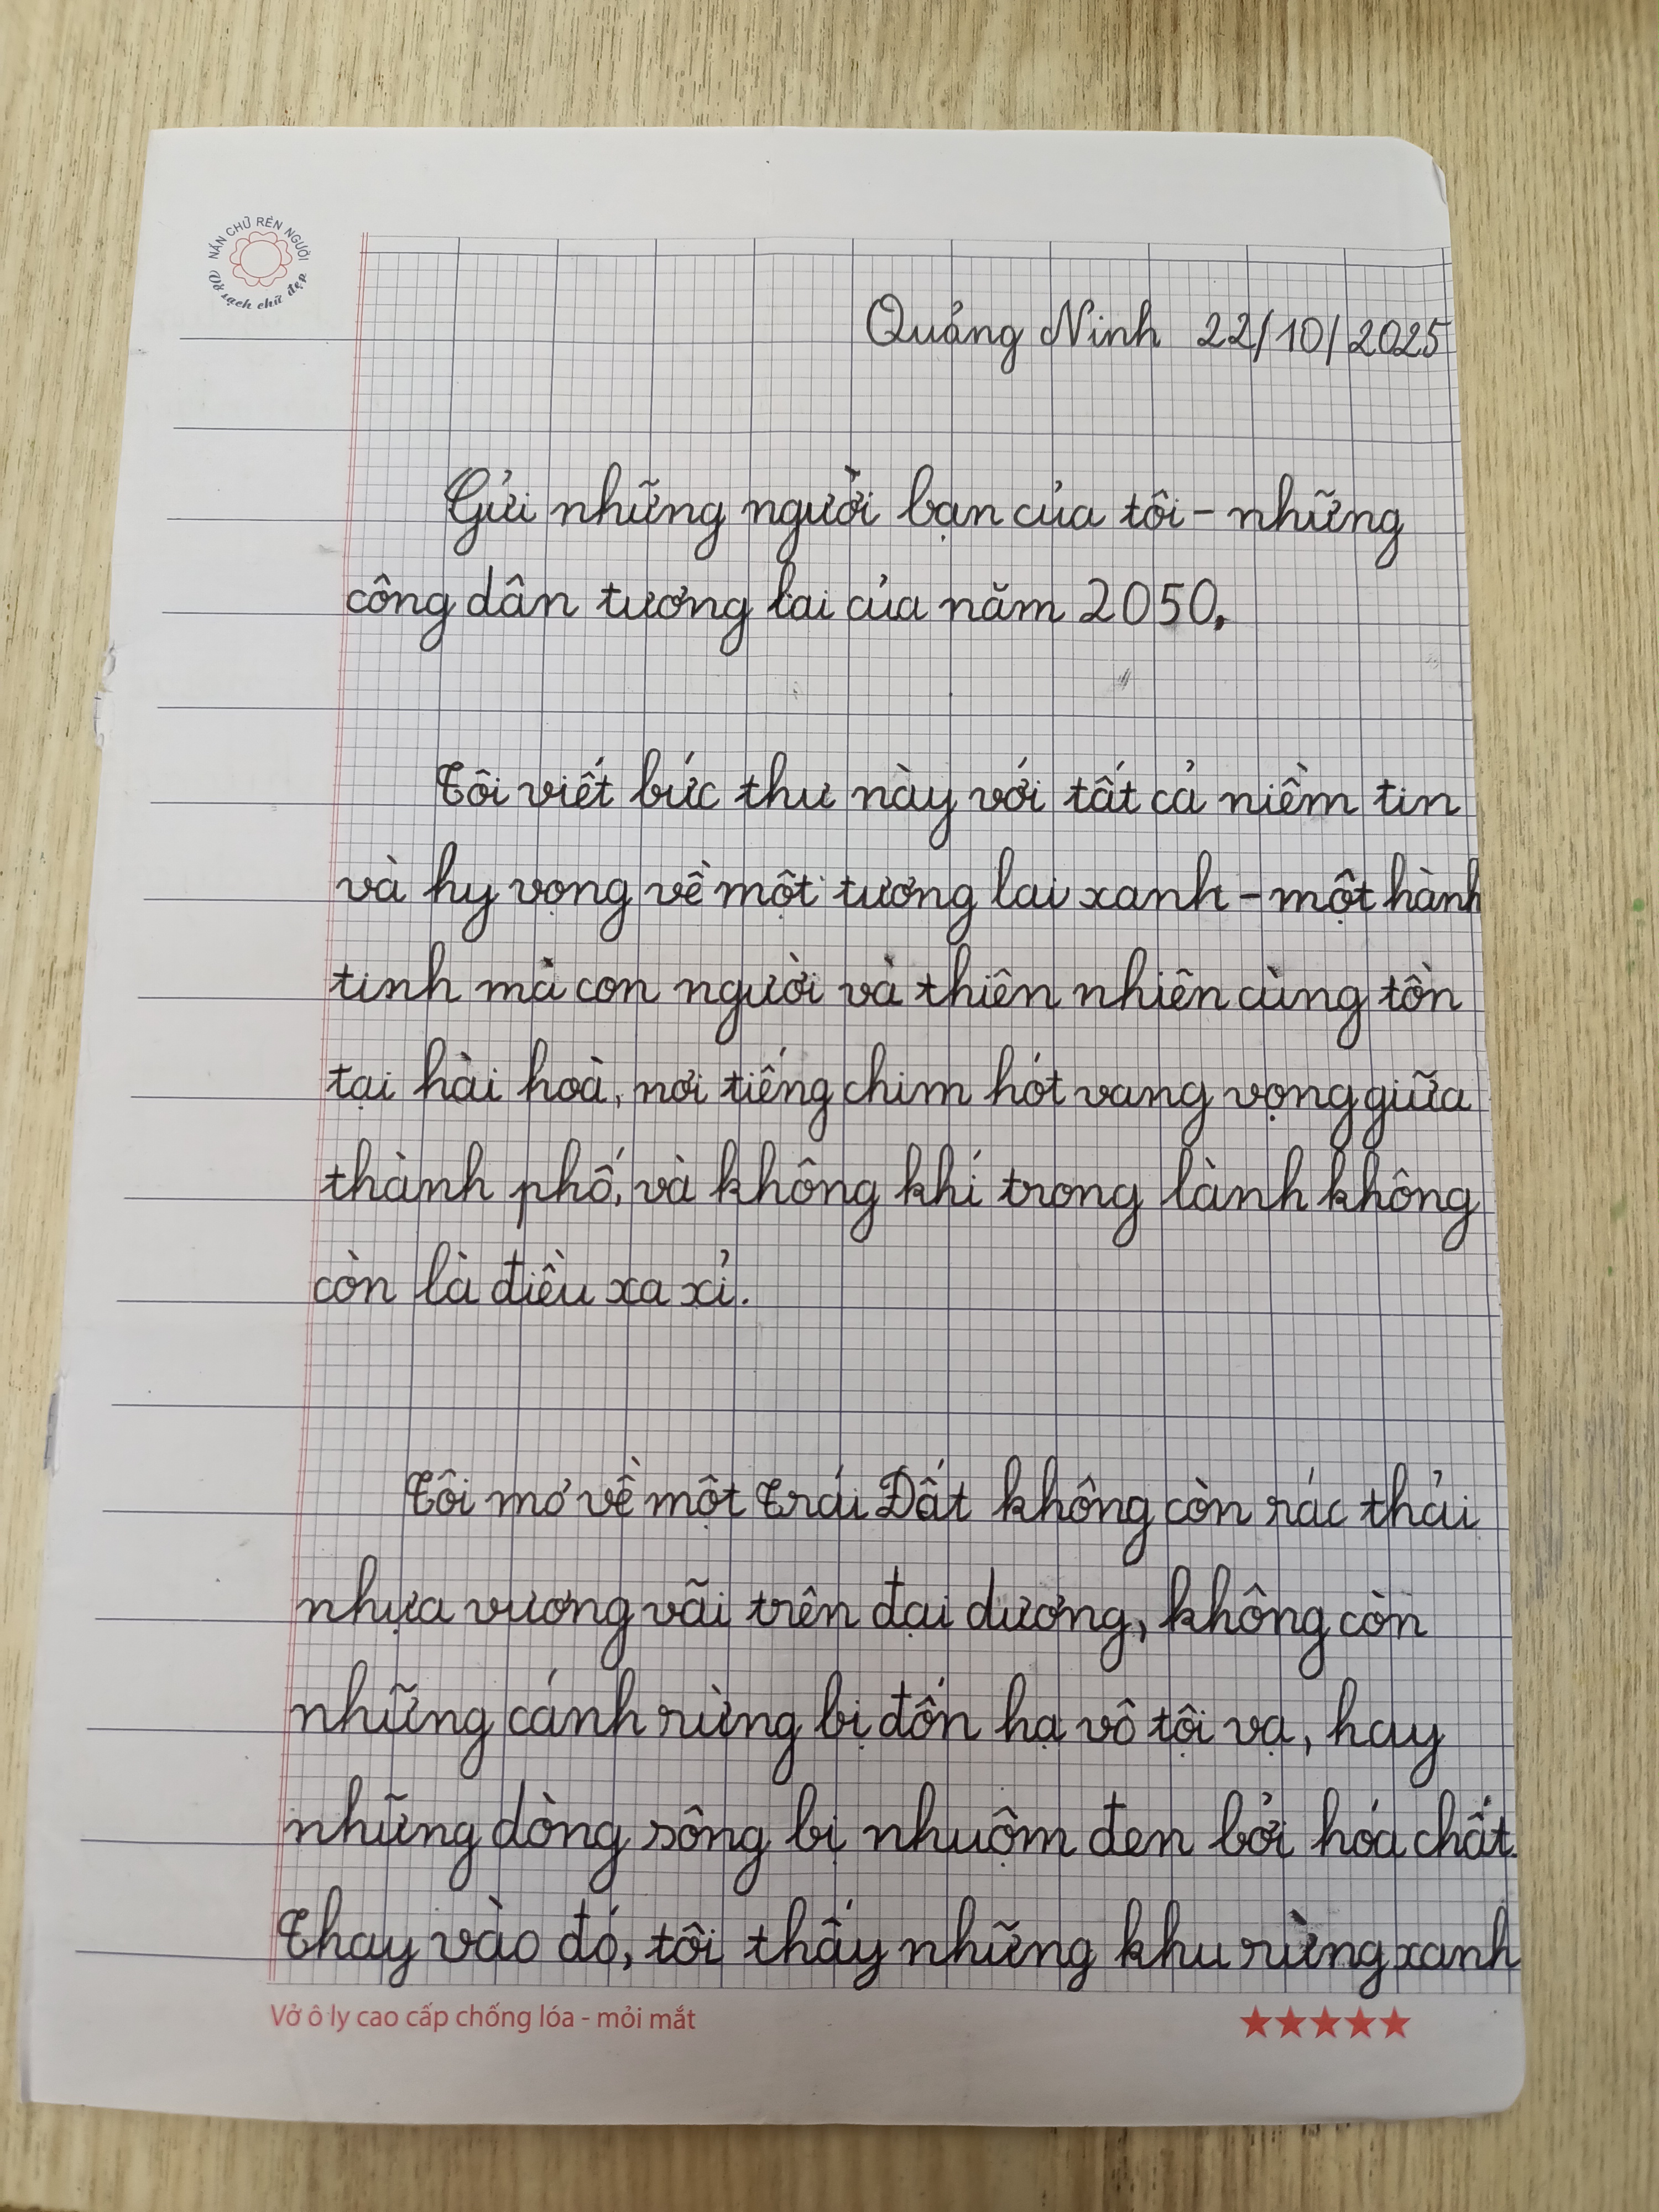 NẮN CHỮ RÈN NGƯỜI
Vở sạch chữ đẹp
Quảng Ninh 22/10/2025
Gửi những người bạn của tôi - những
công dân tương lai của năm 2050.
Tôi viết bức thư này với tất cả niềm tin
và hy vọng về một tương lai xanh - một hành
tinh mà con người và thiên nhiên cùng tồn
tại hài hoà, nơi tiếng chim hót vang vọng giữa
thành phố, và không khí trong lành không
còn là điều xa xỉ.
Tôi mơ về một Trái Đất không còn rác thải
nhựa vương vãi trên đại dương, không còn
những cánh rừng bị đốn hạ vô tội vạ, hay
những dòng sông bị nhuộm đen bởi hóa chất.
Thay vào đó, tôi thấy những khu rừng xanh
Vở ô ly cao cấp chống lóa - mỏi mắt